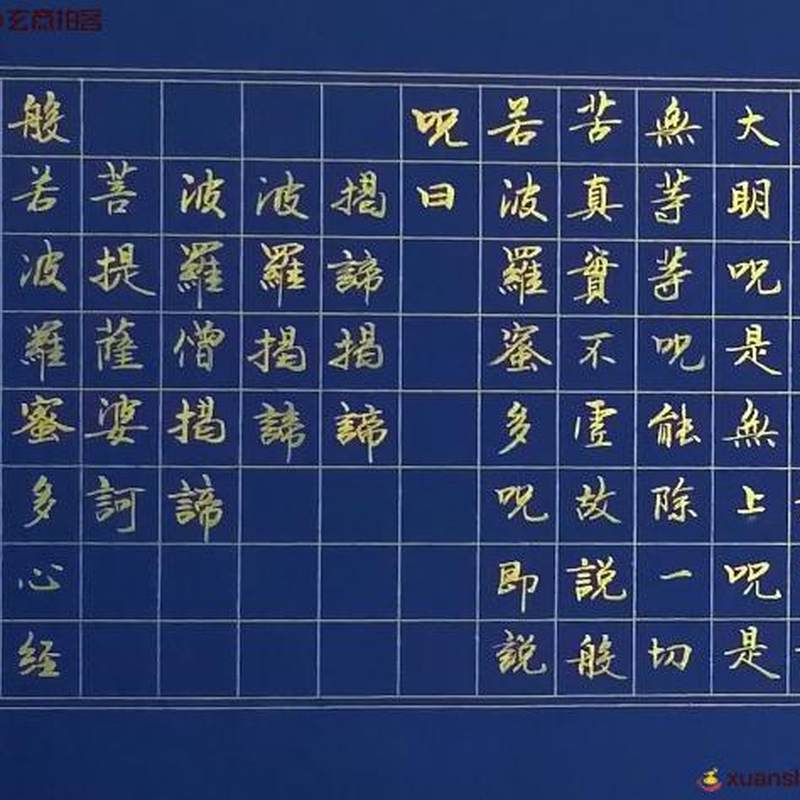 大明呪是無上呪是
無等等呪能除一切
苦真實不虛故說般
若波羅蜜多呪即說
呪曰
揭諦揭諦
波羅揭諦
波羅僧揭諦
菩提薩婆訶
般若波羅蜜多心経
玄商拍客
xuansh